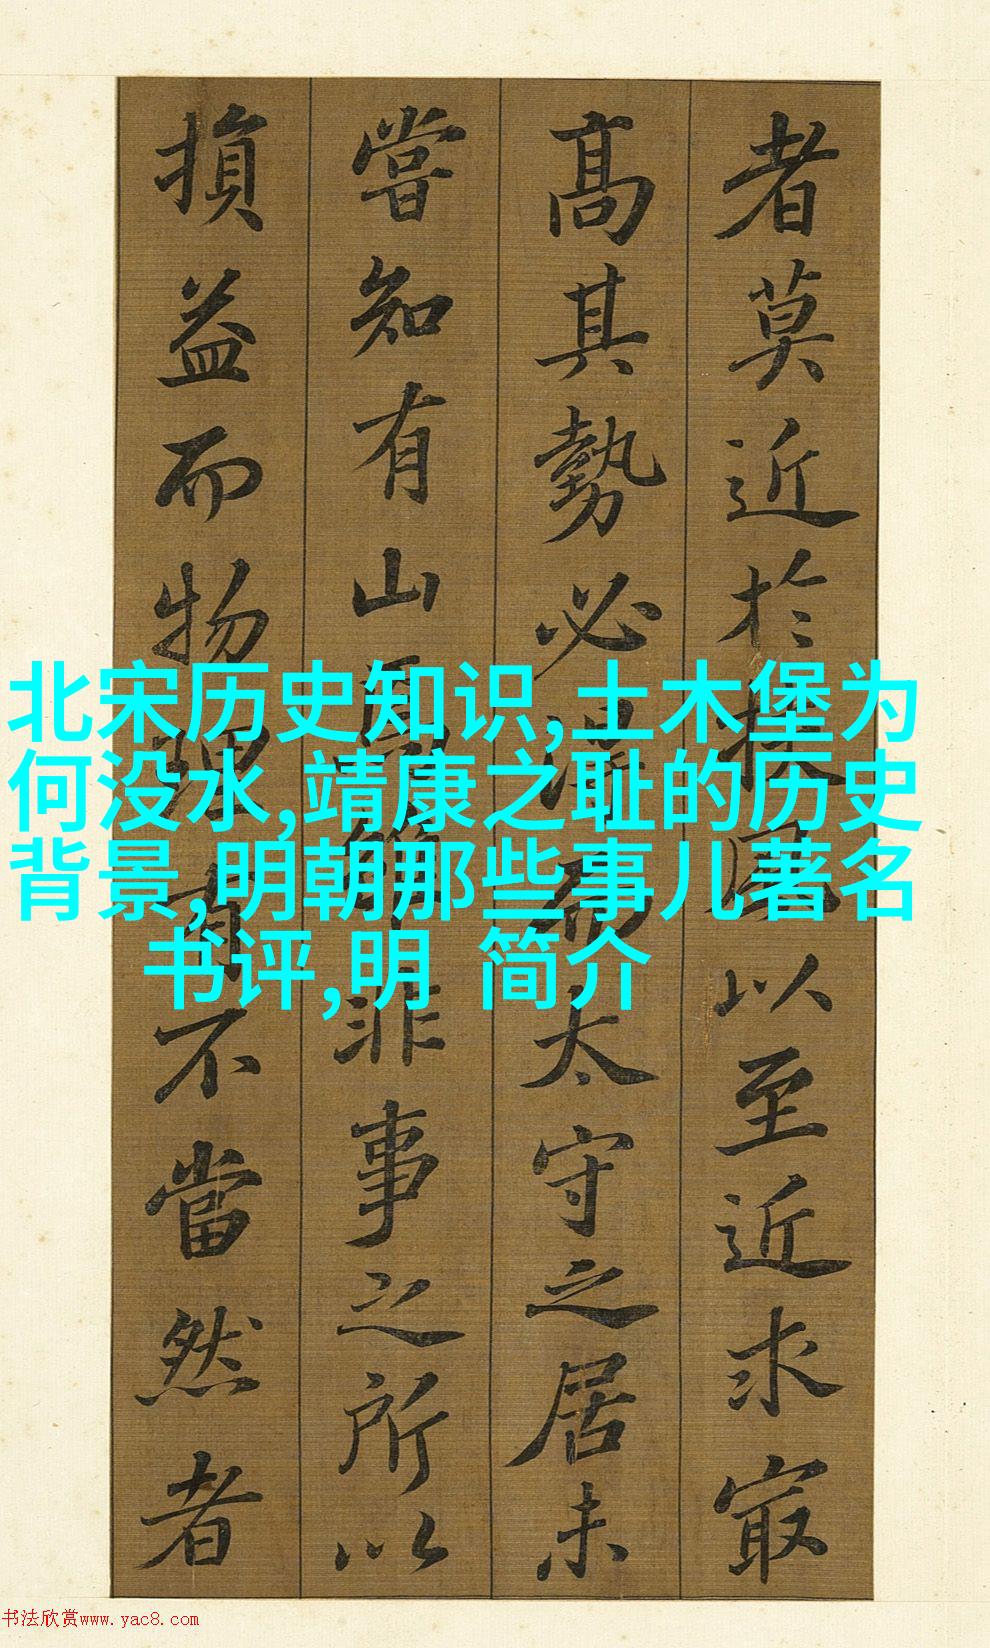 者莫近於扶風以至近求㝡
高其勢必得而太守之居未
嘗知有山焉雖非事之所以
損益而物理有不當然者
北宋历史知识,土木堡为
何没水,靖康之耻的历史
背景,明朝那些事儿著名
书评,明 简介
书法欣赏www.yac8.com